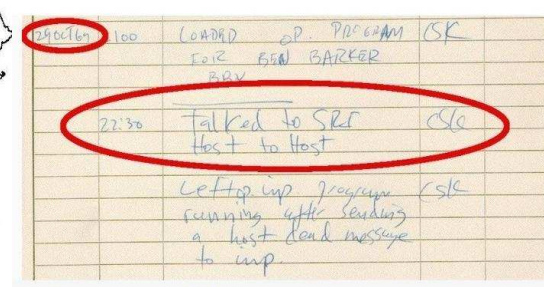 29 OCT 69 100 LOADED OP. PROGRAM CSK
FOR BEN BARKER
BBN
22:30 Talked to SRI CSK
Host to Host
Left op imp program CSK
running after sending
a host dead message
to imp.